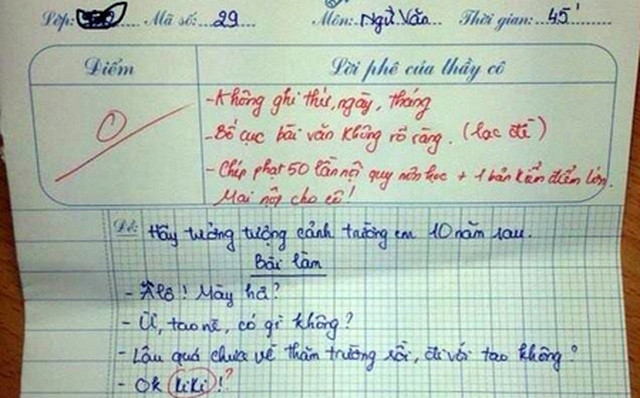 Lớp: Mã số: 29 Môn: Ngữ Văn Thời gian: 45'
Điểm Lời phê của thầy cô
0
- Không ghi thứ, ngày, tháng
- Bố cục bài văn không rõ ràng. (lạc đề)
- Chép phạt 50 lần nội quy môn học + 1 bản kiểm điểm lớn.
Mai nộp cho cô!
Đề: Hãy tưởng tượng cảnh trường em 10 năm sau.
Bài làm
- Álô! Mày hả?
- Ừ, tao nè, có gì không?
- Lâu quá chưa về thăm trường rồi, đi với tao không?
- Ok kiki!?